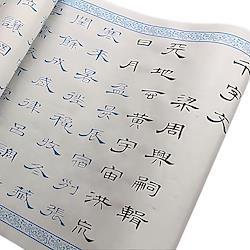 千字文
梁周興嗣輯
天地玄黃宇宙洪荒
日月盈昃辰宿列張
寒來暑往秋收冬藏
閏餘成歲律呂調